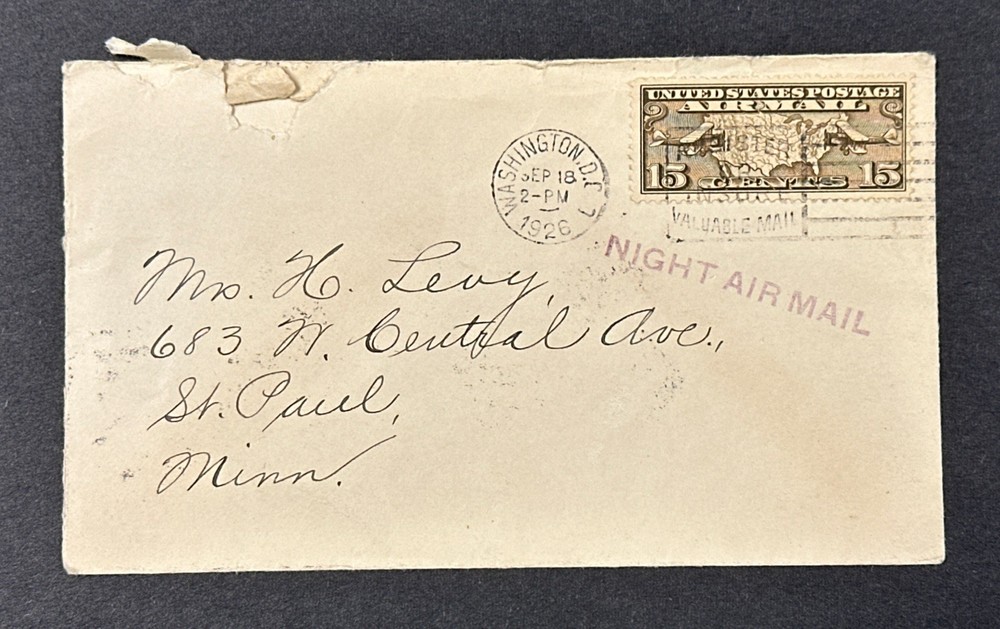 UNITED STATES POSTAGE
AIR MAIL
15 CENTS 15
WASHINGTON, D.C.
SEP 18
2-PM
1926
VALUABLE MAIL
NIGHT AIR MAIL
Mrs. H. Levy,
683 W. Central Ave.,
St. Paul,
Minn.